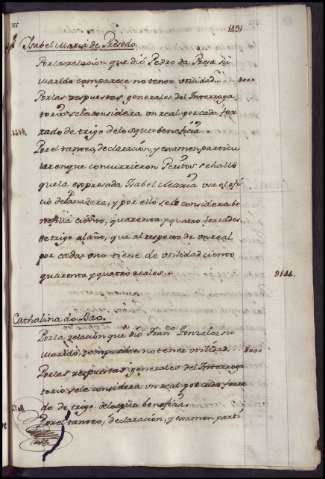 Isabel Maria de
Por la relacion que dió Pedro de su
marido comparece no tener utilidad
Por las respuestas generales del Interroga
torio se la considera un real por cada fer
rado de trigo de los que beneficia.
Por el tanteo, declaración, y examen particu
lar en que concurrieron Peritos se halló
que la expresada Isabel Maria usa el ofi
cio de Panadera, y por ello se le considera be
neficia ciento, quarenta y quatro ferrados
de trigo al año, que al respecto de un real
por cada uno tiene de utilidad ciento
quarenta y quatro reales.
144
Cathalina do
Por la relacion que dió Franco Gonzalez su
marido, comparece no tener utilidad
Por las respuestas generales del Interroga
torio se le considera un real por cada ferra
do de trigo de los que beneficia.
Por el tanteo, declaración, y examen parti